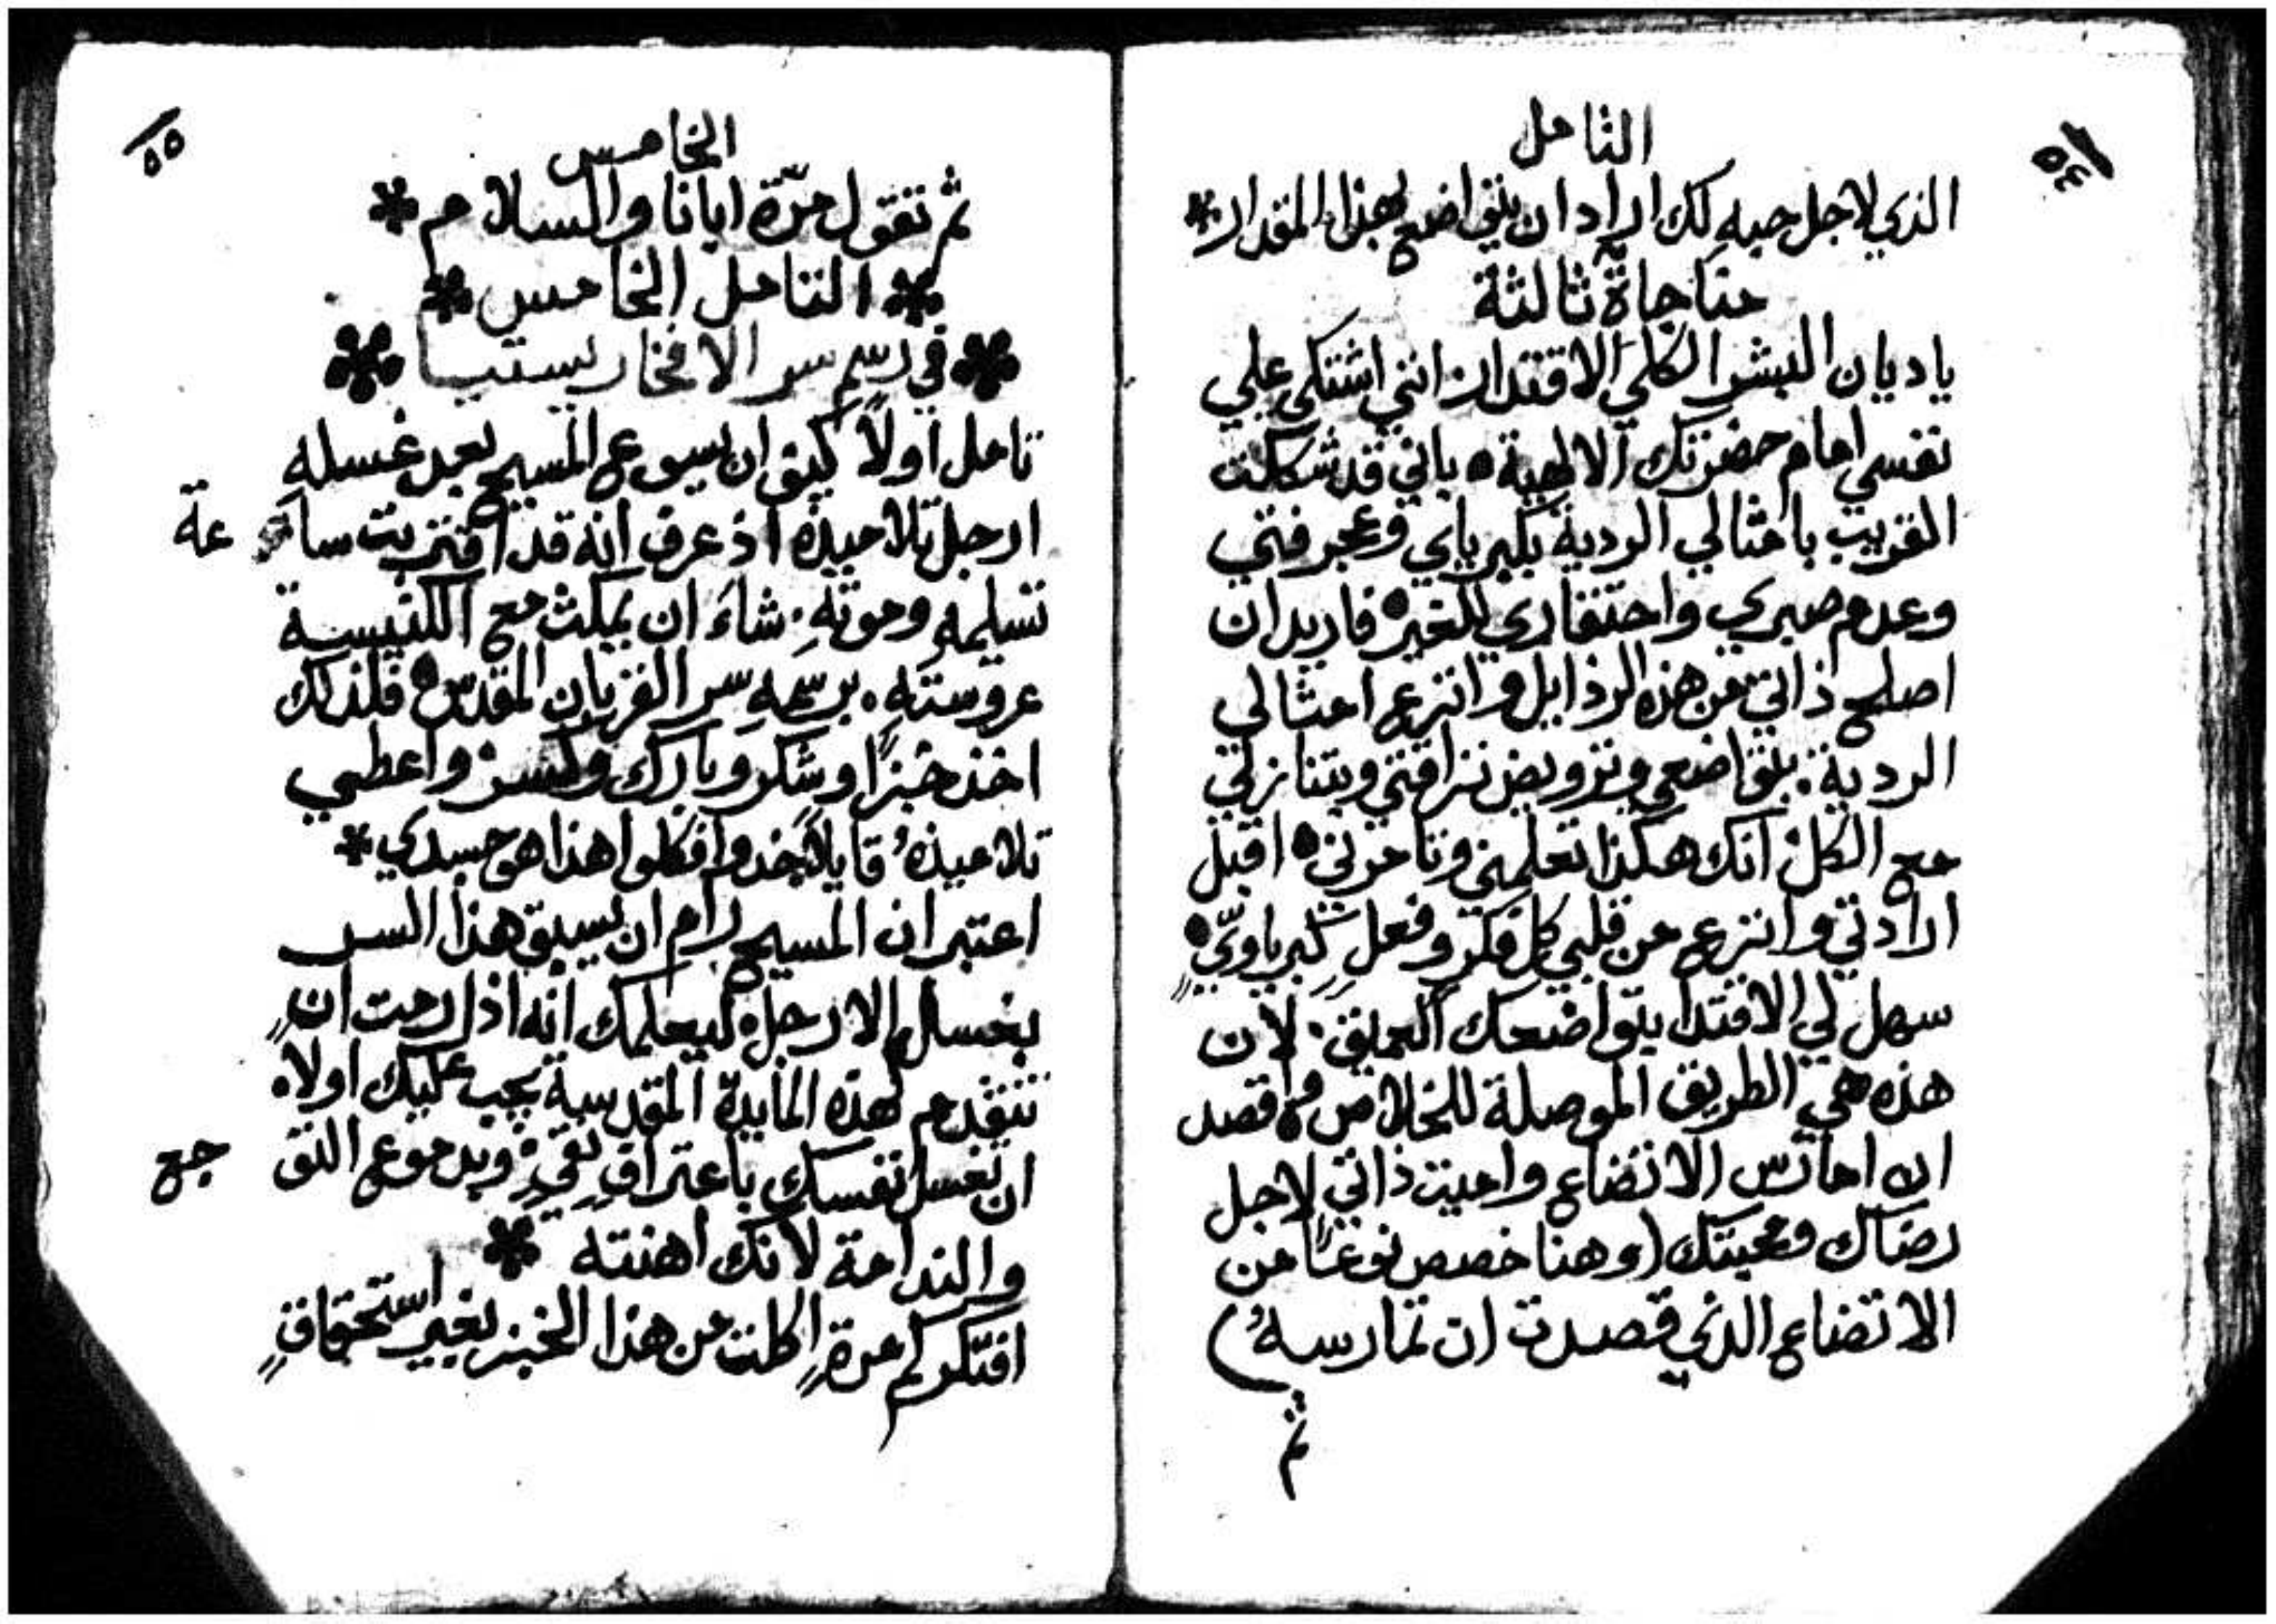 ٥٤
التامل
الذي لاجل حبه لك اراد ان يتواضع بهذا المقدار *
مناجاة ثالثة
يا ديان البشر الكلي الاقتدار انني اشتكي علي
نفسي امام حضرتك الالهية • باني قد شككت
القريب بامثالي الردية بكبرياي وعجرفتي
وعدم صبري واحتقاري للغير • فاريد ان
اصلح ذاتي من هذه الرذايل وانزع امثالي
الردية • بتواضعي وترويض نزاقتي وبتنازلي
مع الكل انك هكذا تعلمني وتامرني • اقبل
ارادتي وانزع من قلبي كل فكرٍ وفعلٍ كبرياويٍّ •
سهل لي الاقتدا بتواضعك العميق • لان
هذه هي الطريق الموصلة للخلاص • واقصد
ان امارس الاتضاع واميت ذاتي لاجل
رضاك ومحبتك (وهنا خصص نوعًا من
الاتضاع الذي قصدت ان تمارسهُ)
ثم
٥٥
الخامس
ثم تقول مرّة ابانا والسلام *
* التامل الخامس *
* في رسم سر الافخارستيا *
تامل اولاً كيف ان يسوع المسيح بعد غسله
ارجل تلاميذه اذ عرف انه قد اقتربت ساعة
تسليمه وموتهِ • شاء ان يمكث مع الكنيسة
عروستهِ • برسمهِ سر القربان المقدس • فلذلك
اخذ خبزًا وشكر وبارك وكسر واعطي
تلاميذهُ قايلاً خذوا فكلوا هذا هو جسدي *
اعتبر ان المسيح رام ان يسبق هذا السر
بغسل الارجل • ليعلمك انه اذا رمت ان
تتقدم لهذه المايدة المقدسة يجب عليك اولاً •
ان تغسل نفسك باعترافٍ نقيٍ • وبدموع التوجع
والندامة لانك اهنته *
افتكر كم مرةٍ اكلت من هذا الخبز بغير استحقاقٍ